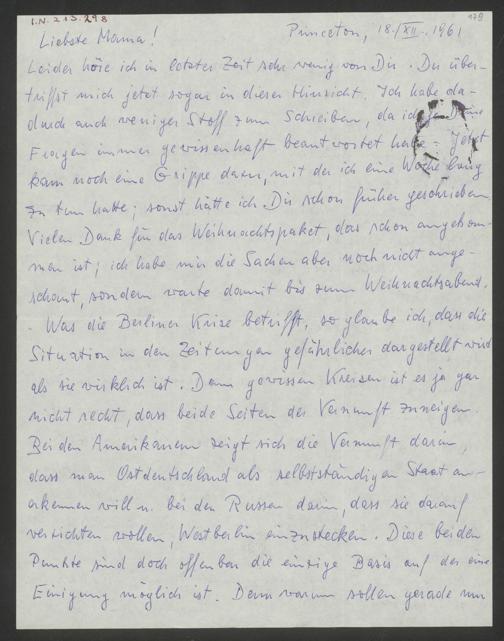 I.N. 213.298
179
Princeton, 18./XII. 1961
Liebste Mama!
Leider höre ich in letzter Zeit sehr wenig von Dir. Du über-
triffst mich jetzt sogar in dieser Hinsicht. Ich habe da-
durch auch weniger Stoff zum Schreiben, da ich ja Deine
Fragen immer gewissenhaft beantwortet habe. Jetzt
kam noch eine Grippe dazu, mit der ich eine Woche lang
zu tun hatte; sonst hätte ich Dir schon früher geschrieben
Vielen Dank für das Weihnachtspaket, das schon angekom-
men ist; ich habe mir die Sachen aber noch nicht ange-
schaut, sondern warte damit bis zum Weihnachtsabend.
- Was die Berliner Krise betrifft, so glaube ich, dass die
Situation in den Zeitungen gefährlicher dargestellt wird
als sie wirklich ist. Denn gewissen Kreisen ist es ja gar
nicht recht, dass beide Seiten der Vernunft zuneigen.
Bei den Amerikanern zeigt sich die Vernunft darin,
dass man Ostdeutschland als selbstständigen Staat an-
erkennen will u. bei den Russen darin, dass sie darauf
verzichten wollen, Westberlin einzustecken. Diese beiden
Punkte sind doch offenbar die einzige Basis auf der eine
Einigung möglich ist. Denn warum sollen gerade nur